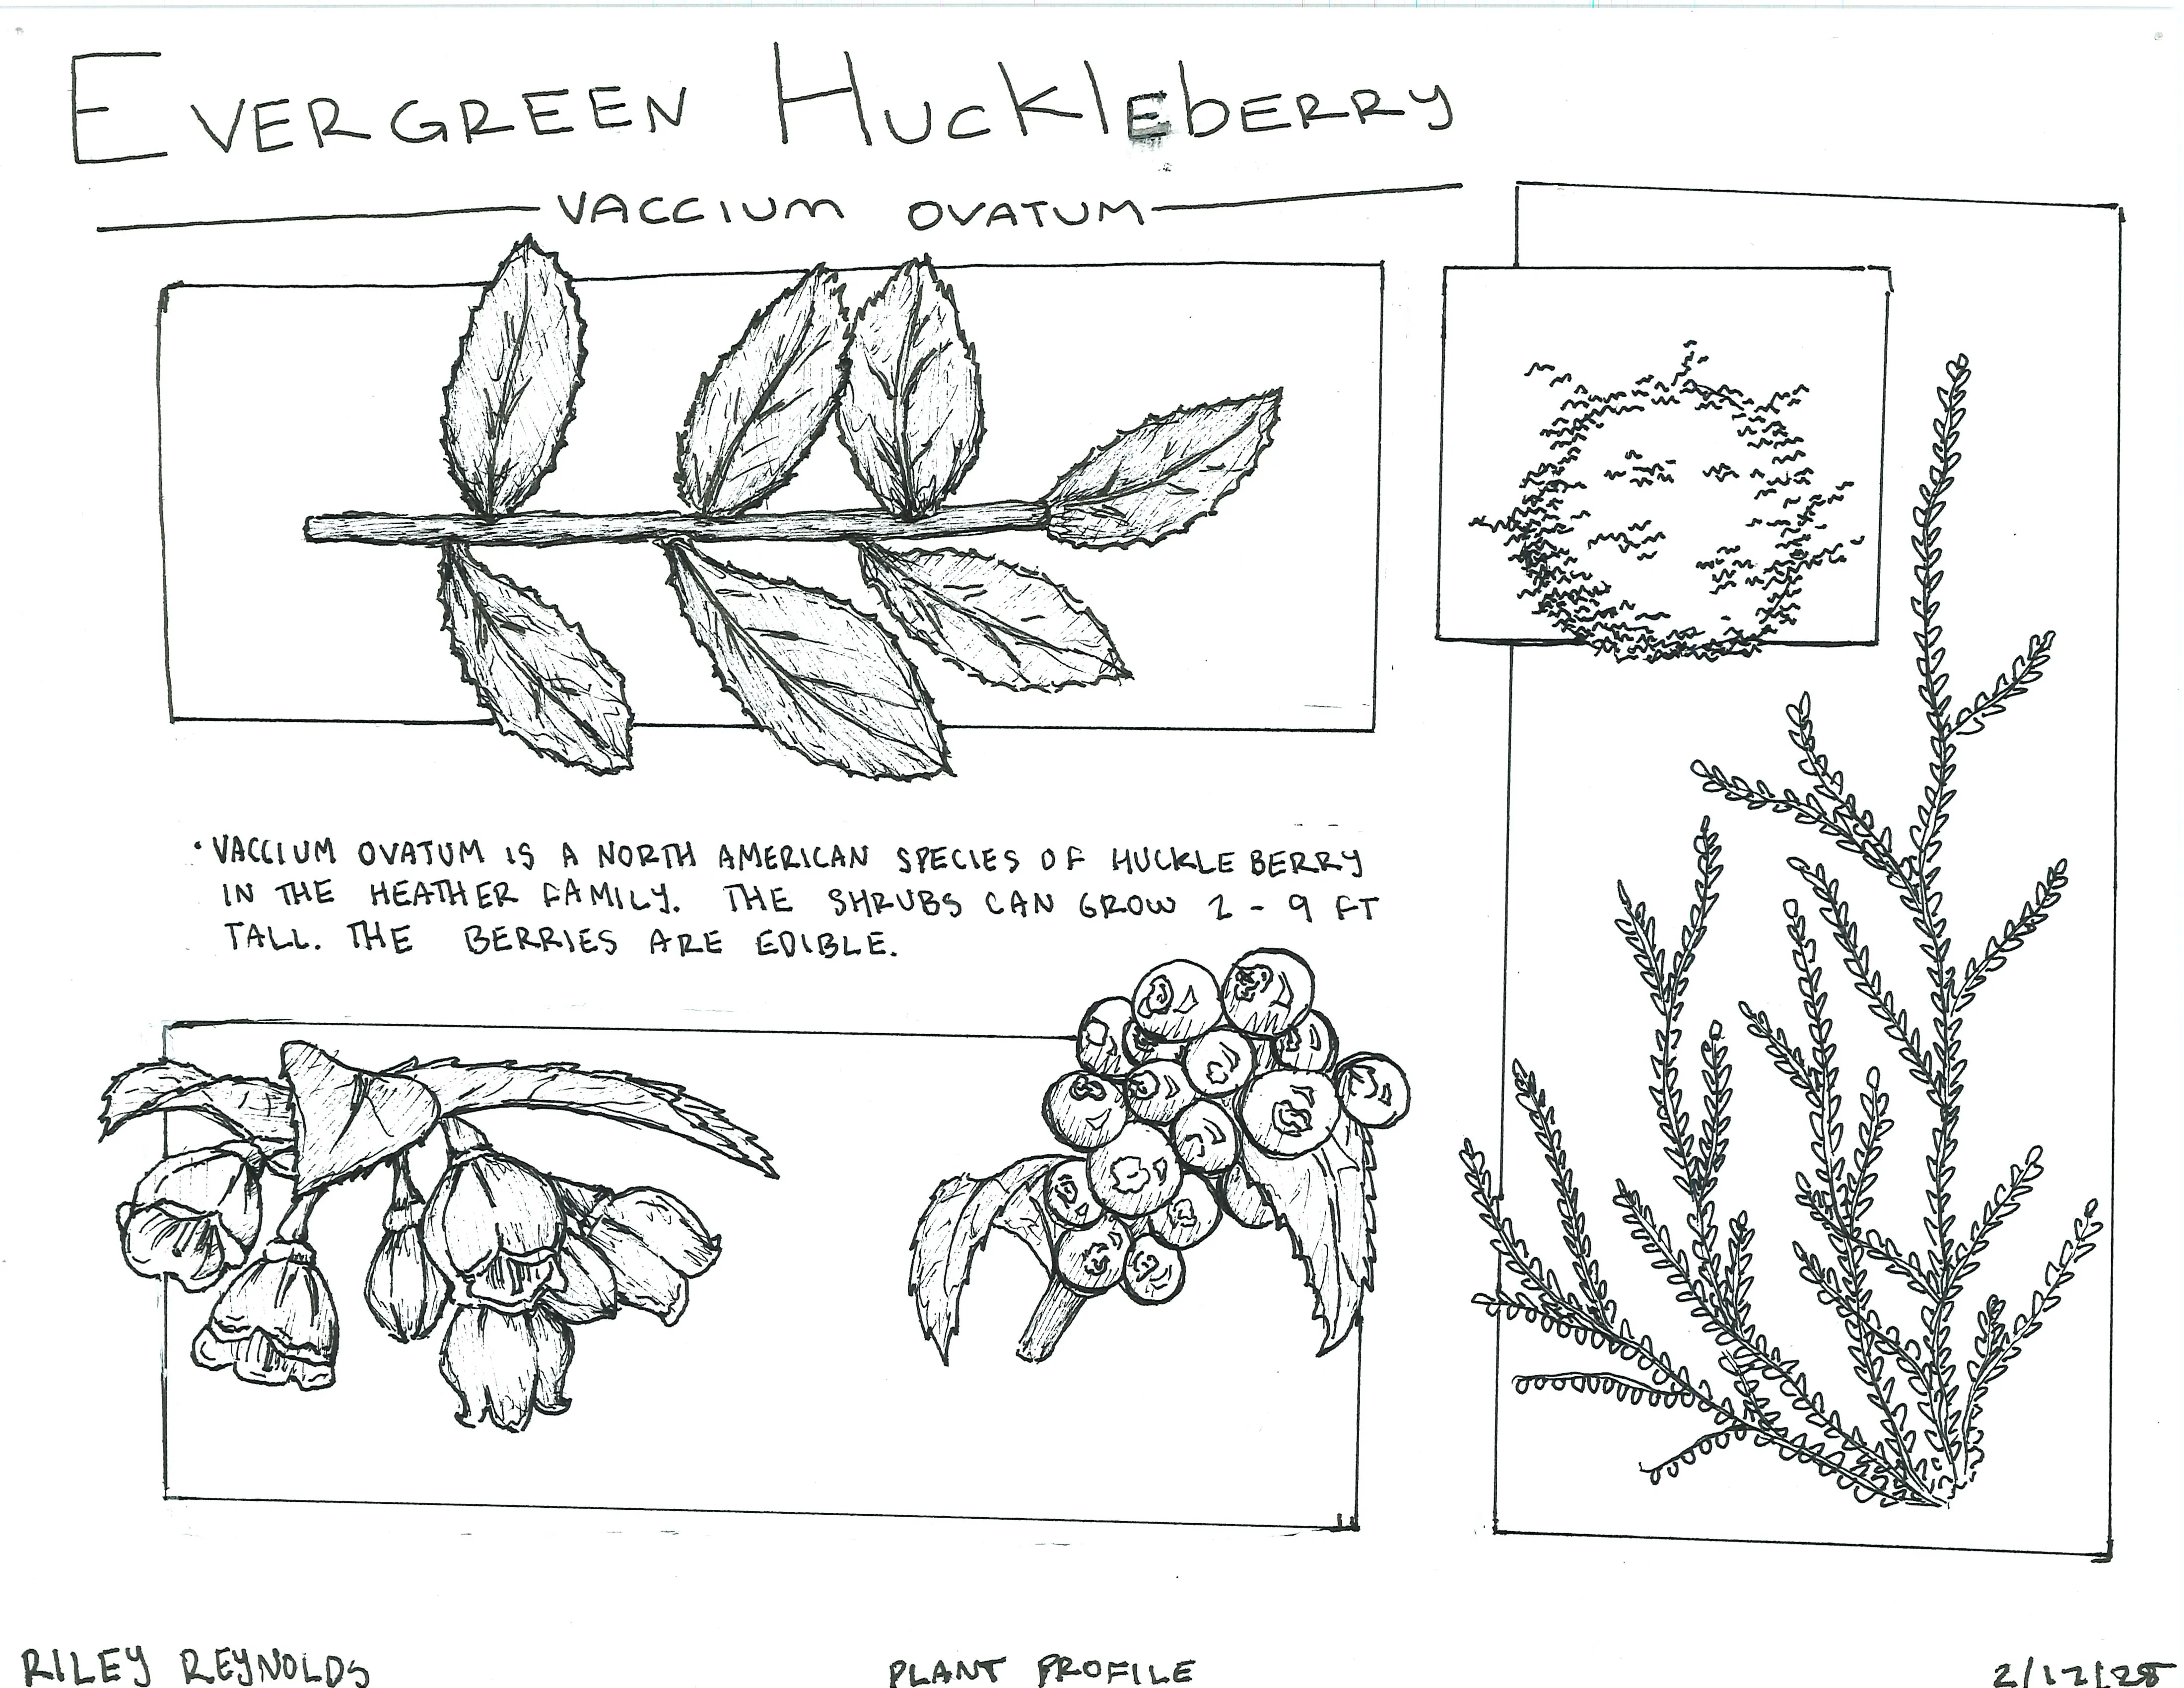 EVERGREEN HUCKLEBERRY
VACCIUM OVATUM
• VACCIUM OVATUM IS A NORTH AMERICAN SPECIES OF HUCKLEBERRY
IN THE HEATHER FAMILY. THE SHRUBS CAN GROW 2 - 9 FT
TALL. THE BERRIES ARE EDIBLE.
RILEY REYNOLDS
PLANT PROFILE